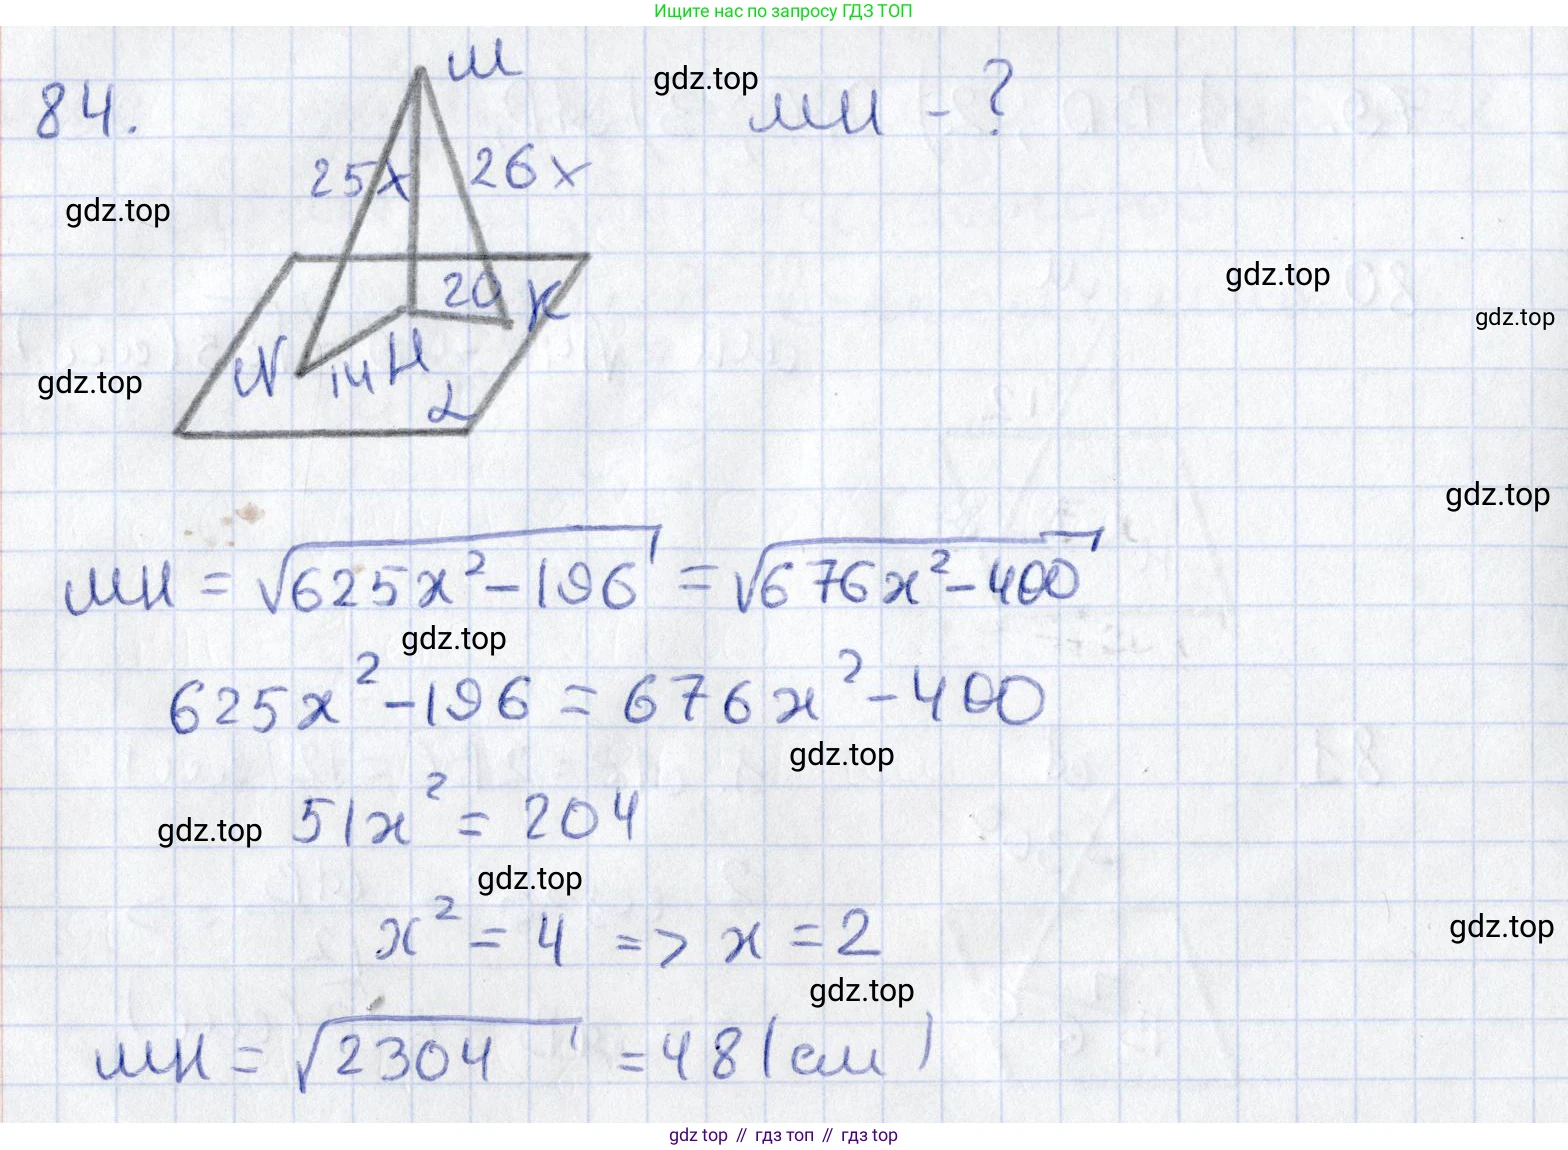 Ищите нас по запросу ГДЗ ТОП
84.
M
MH - ?
gdz.top
25x
26x
gdz.top
gdz.top
20
K
gdz.top
N
14
H
α
gdz.top
gdz.top
MH = √625x² - 196 = √676x² - 400
gdz.top
625x² - 196 = 676x² - 400
gdz.top
51x² = 204
gdz.top
gdz.top
x² = 4 => x = 2
gdz.top
gdz.top
MH = √2304 = 48 (см)
gdz top // гдз топ // gdz top